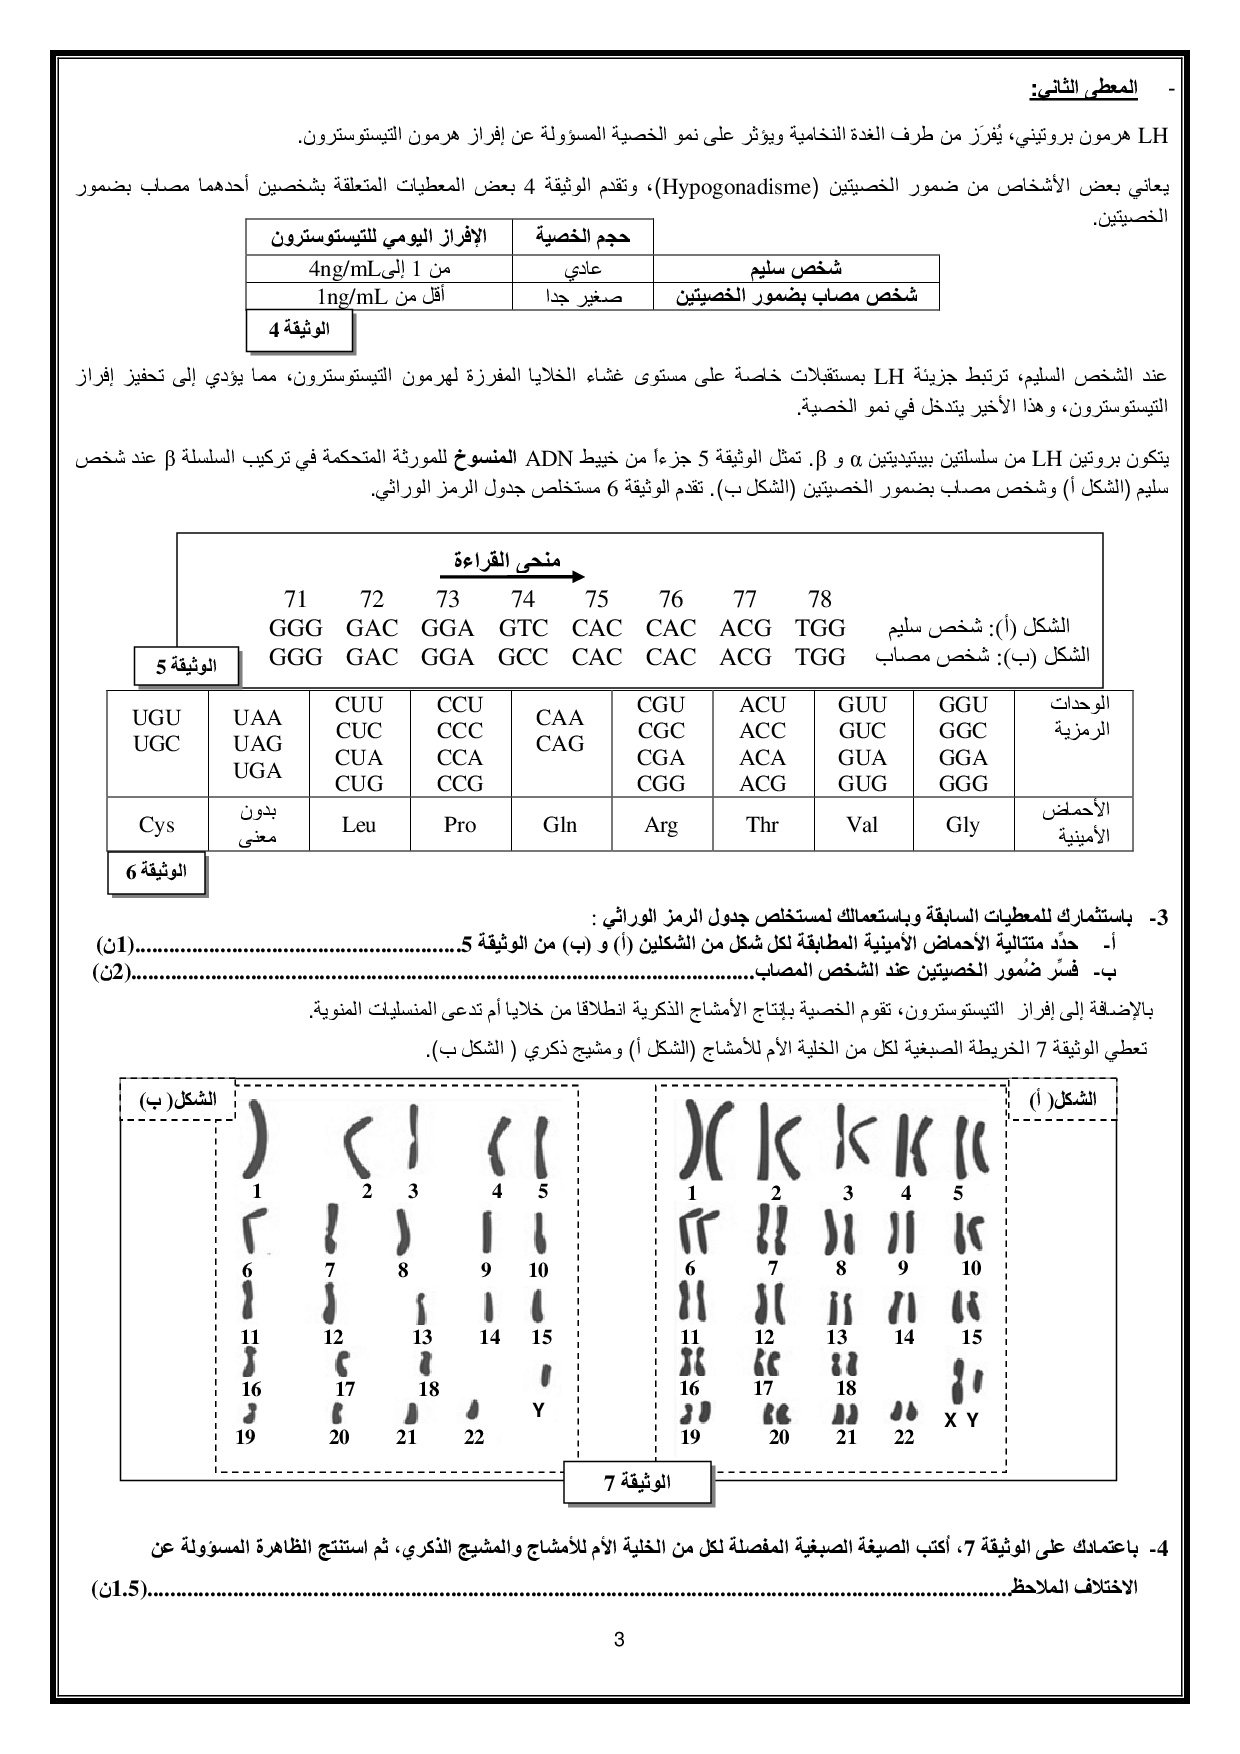 - المعطى الثاني:
LH هرمون بروتيني، يُفرَز من طرف الغدة النخامية ويؤثر على نمو الخصية المسؤولة عن إفراز هرمون التيستوسترون.
يعاني بعض الأشخاص من ضمور الخصيتين (Hypogonadisme)، وتقدم الوثيقة 4 بعض المعطيات المتعلقة بشخصين أحدهما مصاب بضمور
الخصيتين.
حجم الخصية الإفراز اليومي للتيستوسترون
شخص سليم عادي من 1 إلى4ng/mL
شخص مصاب بضمور الخصيتين صغير جدا أقل من 1ng/mL
الوثيقة 4
عند الشخص السليم، ترتبط جزيئة LH بمستقبلات خاصة على مستوى غشاء الخلايا المفرزة لهرمون التيستوسترون، مما يؤدي إلى تحفيز إفراز
التيستوسترون، وهذا الأخير يتدخل في نمو الخصية.
يتكون بروتين LH من سلسلتين بيبتيديتين α و β. تمثل الوثيقة 5 جزءاً من خييط ADN المنسوخ للمورثة المتحكمة في تركيب السلسلة β عند شخص
سليم (الشكل أ) وشخص مصاب بضمور الخصيتين (الشكل ب). تقدم الوثيقة 6 مستخلص جدول الرمز الوراثي.
منحى القراءة
71 72 73 74 75 76 77 78
GGG GAC GGA GTC CAC CAC ACG TGG الشكل (أ): شخص سليم
GGG GAC GGA GCC CAC CAC ACG TGG الشكل (ب): شخص مصاب
الوثيقة 5
UGU UAA CUU CCU CAA CGU ACU GUU GGU الوحدات
UGC UAG CUC CCC CAG CGC ACC GUC GGC الرمزية
UGA CUA CCA CGA ACA GUA GGA
CUG CCG CGG ACG GUG GGG
Cys بدون معنى Leu Pro Gln Arg Thr Val Gly الأحماض الأمينية
الوثيقة 6
3- باستثمارك للمعطيات السابقة وباستعمالك لمستخلص جدول الرمز الوراثي :
أ- حدِّد متتالية الأحماض الأمينية المطابقة لكل شكل من الشكلين (أ) و (ب) من الوثيقة 5.......................................................(1ن)
ب- فسِّر ضُمور الخصيتين عند الشخص المصاب.........................................................................................................(2ن)
بالإضافة إلى إفراز التيستوسترون، تقوم الخصية بإنتاج الأمشاج الذكرية انطلاقا من خلايا أم تدعى المنسليات المنوية.
تعطي الوثيقة 7 الخريطة الصبغية لكل من الخلية الأم للأمشاج (الشكل أ) ومشيج ذكري ( الشكل ب).
الشكل( أ)
1 2 3 4 5
6 7 8 9 10
11 12 13 14 15
16 17 18
X Y
19 20 21 22
الشكل( ب)
1 2 3 4 5
6 7 8 9 10
11 12 13 14 15
16 17 18
Y
19 20 21 22
الوثيقة 7
4- باعتمادك على الوثيقة 7، أكتب الصيغة الصبغية المفصلة لكل من الخلية الأم للأمشاج والمشيج الذكري، ثم استنتج الظاهرة المسؤولة عن
الاختلاف الملاحظ.................................................................................................................................................(1.5ن)
3